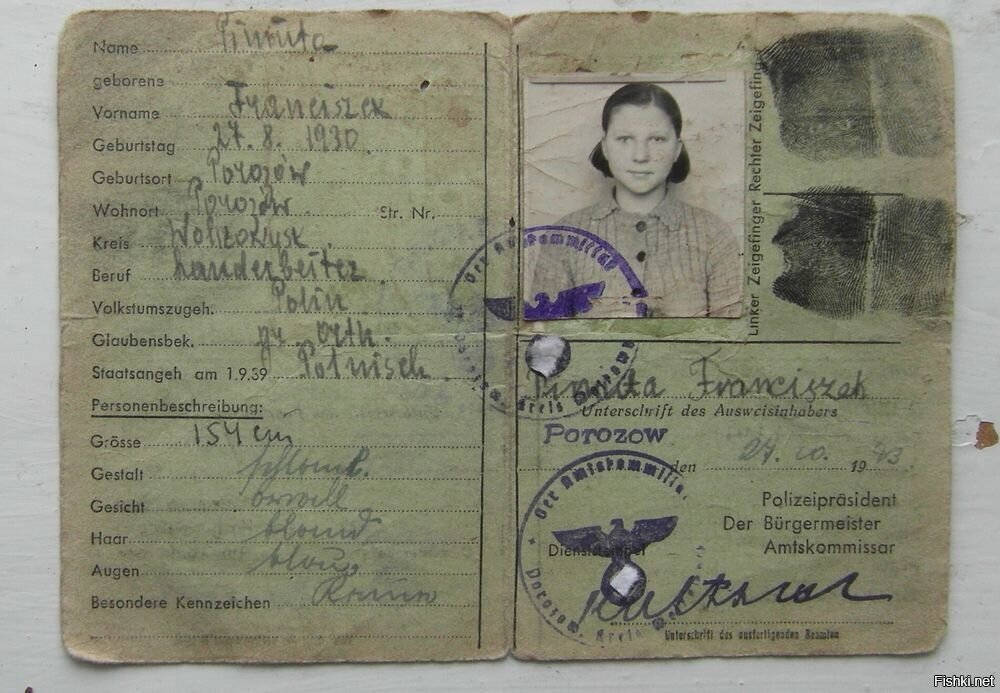 Name Pimuta
geborene
Vorname Franciszek
Geburtstag 27. 8. 1930
Geburtsort Porozów
Wohnort Porozów Str. Nr.
Kreis
Beruf Landarbeiter
Volkstumszugeh. Polin
Glaubensbek. gr. orth.
Staatsangeh am 1.9.39 Polnisch
Personenbeschreibung:
Grösse 154 cm
Gestalt schlank.
Gesicht
Haar blond
Augen blau
Besondere Kennzeichen
Linker Zeigefinger Rechter Zeigefinger
Der Amtskommissar
Pimuta Franciszek
Unterschrift des Ausweisinhabers
POROZOW
den 27. 10. 1943.
Der Amtskommissar
Polizeipräsident
Der Bürgermeister
Amtskommissar
Dienststempel
Unterschrift des ausfertigenden Beamten
Fishki.net